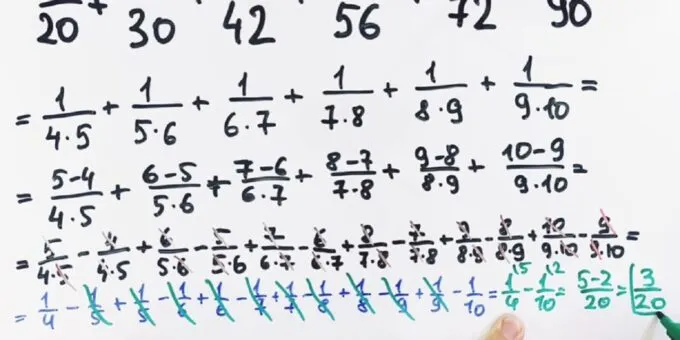 20 + 30 42 56 72 90
= 1/(4·5) + 1/(5·6) + 1/(6·7) + 1/(7·8) + 1/(8·9) + 1/(9·10) =
= (5-4)/(4·5) + (6-5)/(5·6) + (7-6)/(6·7) + (8-7)/(7·8) + (9-8)/(8·9) + (10-9)/(9·10) =
= 5/(4·5) - 4/(4·5) + 6/(5·6) - 5/(5·6) + 7/(6·7) - 6/(6·7) + 8/(7·8) - 7/(7·8) + 9/(8·9) - 8/(8·9) + 10/(9·10) - 9/(9·10) =
= 1/4 - 1/5 + 1/5 - 1/6 + 1/6 - 1/7 + 1/7 - 1/8 + 1/8 - 1/9 + 1/9 - 1/10 = 1/4 - 1/10 = (5-2)/20 = 3/20